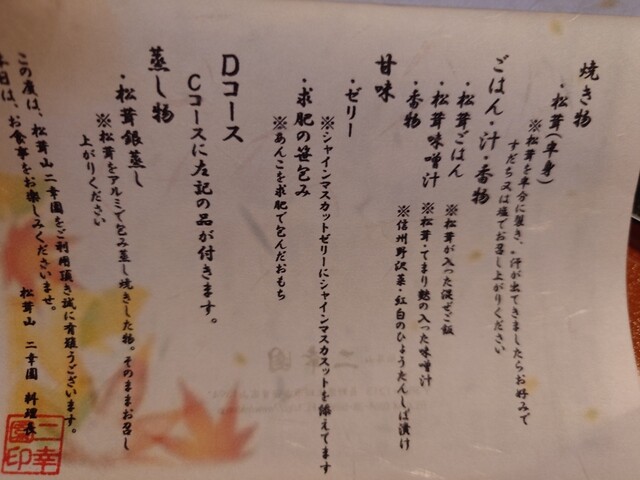 焼き物
・松茸(半身)
※松茸を半分に裂き、汗が出てきましたらお好みで
すだち又は塩でお召し上がりください
ごはん・汁・香物
・松茸ごはん ※松茸が入った混ぜご飯
・松茸味噌汁 ※松茸・てまり麩の入った味噌汁
・香物 ※信州野沢菜・紅白のひょうたんしば漬け
甘味
・ゼリー
※シャインマスカットゼリーにシャインマスカットを添えてます
・求肥の笹包み
※あんこを求肥で包んだおもち
Dコース
Cコースに左記の品が付きます。
蒸し物
・松茸銀蒸し
※松茸をアルミで包み蒸し焼きした物。そのままお召し
上がりください
この度は、松茸山二幸園をご利用頂き誠に有難うございます。
本日は、お食事をお楽しみくださいませ。
松茸山 二幸園 料理長
二幸園印